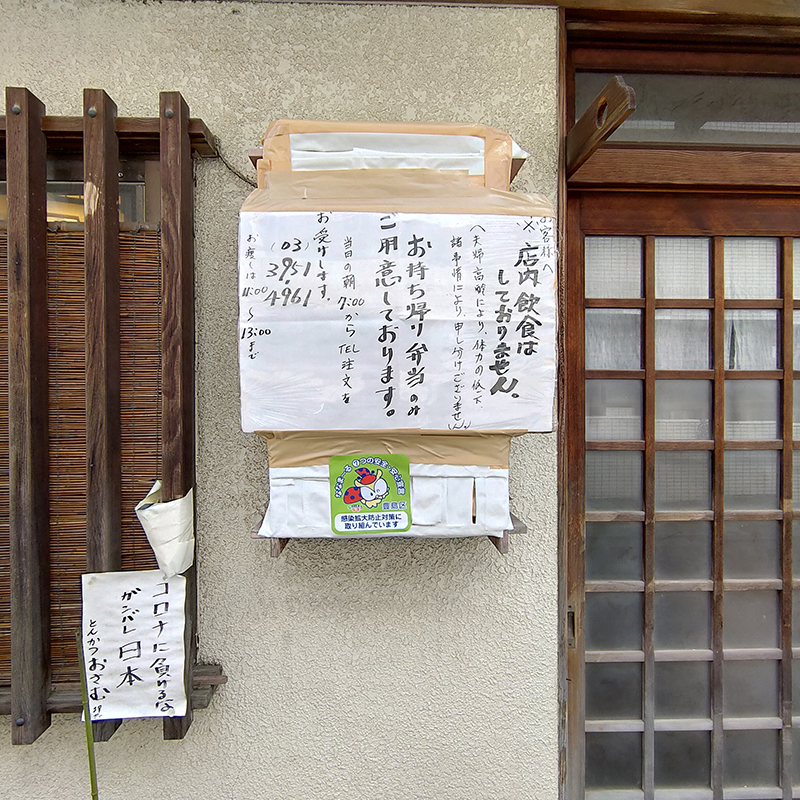 お客様へ
※店内飲食は
しておりません。
(夫婦高齢により、体力の低下、
諸事情により、申し分けございません。)
お持ち帰り弁当のみ
ご用意しております。
当日の朝7:00からTEL注文を
お受けします。
(03)
3951
4961
お渡しは11:00〜13:00まで
ななまーる 7つの安全・安心宣言
豊島区
感染拡大防止対策に
取り組んでいます
コロナに負けるな
ガンバレ日本
とんかつおさむ